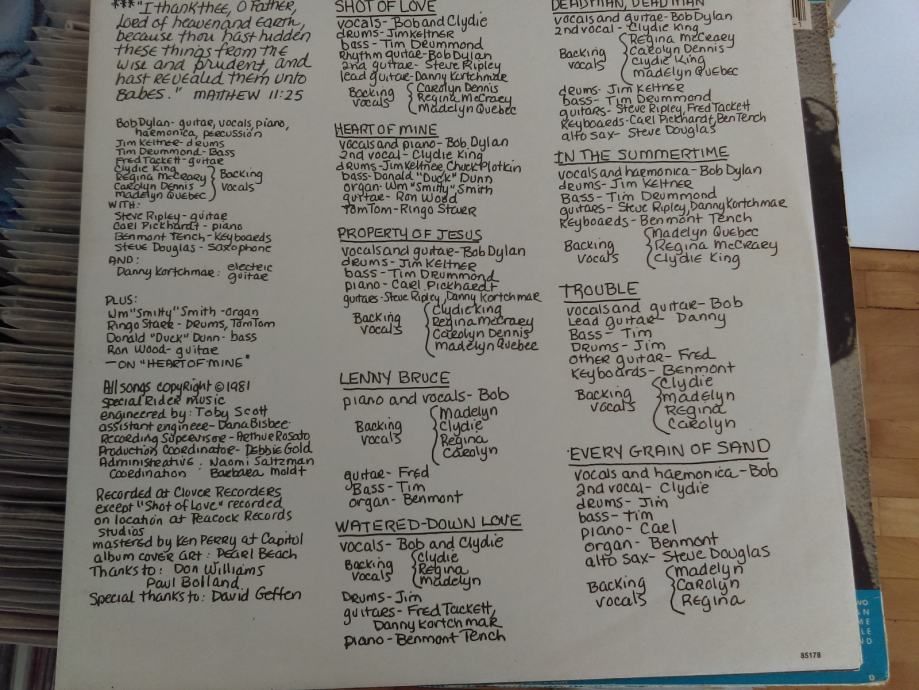 ***"I thank thee, O Father,
Lord of heaven and Earth,
because thou hast hidden
these things from the
wise and prudent, and
hast revealed them unto
Babes." MATHEW 11:25
Bob Dylan- guitar, vocals, piano,
harmonica, percussion
Jim Keltner- drums
Tim Drummond- Bass
Fred Tackett- guitar
Clydie King
Regina McCreary
Carolyn Dennis
Madelyn Quebec
Backing
vocals
WITH:
Steve Ripley- guitar
Carl Pickhardt- piano
Benmont Tench- Keyboards
Steve Douglas- saxophone
AND:
Danny Kortchmar: electric
guitar
PLUS:
Wm "Smitty" Smith -organ
Ringo Starr- Drums, Tom Tom
Donald "Duck" Dunn- bass
Ron Wood- guitar
-ON "HEART OF MINE"
All songs copyright ©1981
Special Rider music
engineered by: Toby Scott
assistant engineer- Dana Bisbee
Recording Supervisor- Arthur Rosato
Production Coordinator- Debbie Gold
Administrative: Naomi Saltzman
Coordination Barbara Moldt
Recorded at Clover Recorders
except "Shot of Love" recorded
on location at Peacock Records
Studios
mastered by Ken Perry at Capitol
album cover art: Pearl Beach
Thanks to: Don Williams
Paul Bolland
Special thanks to: David Geffen
SHOT OF LOVE
vocals- Bob and Clydie
drums- Jim Keltner
bass- Tim Drummond
Rhythm guitar- Bob Dylan
2nd guitar- Steve Ripley
lead guitar- Danny Kortchmar
Backing
vocals
Carolyn Dennis
Regina McCrary
Madelyn Quebec
HEART OF MINE
vocals and piano- Bob Dylan
2nd vocal- Clydie King
drums- Jim Keltner, Chuck Plotkin
bass- Donald "Duck" Dunn
organ- Wm "Smitty" Smith
guitar- Ron Wood
Tom Tom- Ringo Starr
PROPERTY OF JESUS
vocals and guitar- Bob Dylan
drums- Jim Keltner
bass- Tim Drummond
piano- Carl Pickhardt
guitars- Steve Ripley, Danny Kortchmar
Backing
vocals
Clydie King
Regina McCrary
Carolyn Dennis
Madelyn Quebec
LENNY BRUCE
piano and vocals- Bob
Backing
vocals
Madelyn
Clydie
Regina
Carolyn
guitar- Fred
Bass- Tim
organ- Benmont
WATERED-DOWN LOVE
vocals- Bob and Clydie
Backing
vocals
Clydie
Regina
Madelyn
Drums- Jim
guitars- Fred Tackett,
Danny Kortchmar
piano- Benmont Tench
DEAD MAN, DEAD MAN
vocals and guitar- Bob Dylan
2nd vocal- Clydie King
Backing
vocals
Regina McCreary
Carolyn Dennis
Clydie King
Madelyn Quebec
drums- Jim Keltner
bass- Tim Drummond
guitars- Steve Ripley, Fred Tackett
Keyboards- Carl Pickhardt, Ben Tench
alto sax- Steve Douglas
IN THE SUMMERTIME
vocals and harmonica- Bob Dylan
drums- Jim Keltner
Bass- Tim Drummond
guitars- Steve Ripley, Danny Kortchmar
Keyboards- Benmont Tench
Backing
vocals
Madelyn Quebec
Regina McCrary
Clydie King
TROUBLE
vocals and guitar- Bob
Lead guitar- Danny
Bass- Tim
Drums- Jim
other guitar- Fred
Keyboards- Benmont
Backing
vocals
Clydie
Madelyn
Regina
Carolyn
EVERY GRAIN OF SAND
vocals and harmonica- Bob
2nd vocal- Clydie
drums- Jim
bass- Tim
piano- Carl
organ- Benmont
alto sax- Steve Douglas
Backing
vocals
Madelyn
Carolyn
Regina
85178